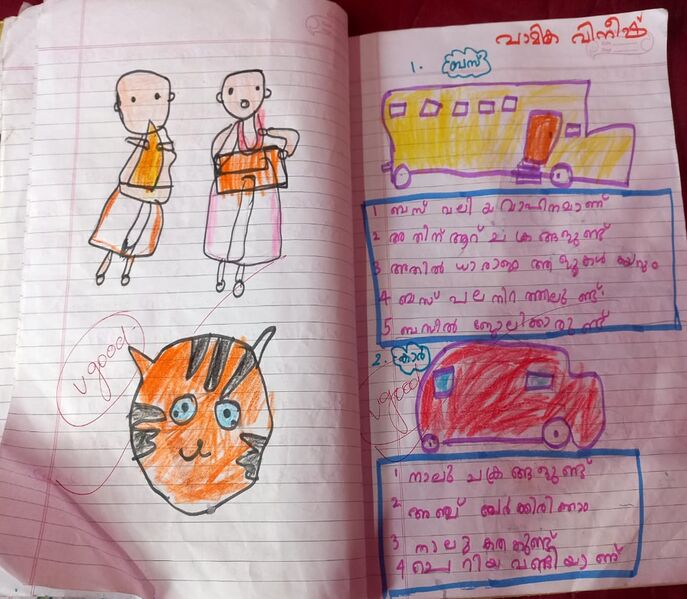 വാമിക വിനീഷ്
1. ബസ്
1 ബസ് വലിയ വാഹനമാണ്
2 അതിന് ആറ് ചക്രങ്ങളുണ്ട്
3 അതിൽ ധാരാളം ആളുകൾ കയറും
4 ബസ് പല നിറത്തിലുണ്ട്
5 ബസിൽ ജോലിക്കാരുണ്ട്
v good
2. കാർ
v good
1 നാലു ചക്രങ്ങളുണ്ട്
2 അഞ്ച് പേർക്കിരിക്കാം
3 നാലു കതകുണ്ട്
4 ചെറിയ വണ്ടിയാണ്